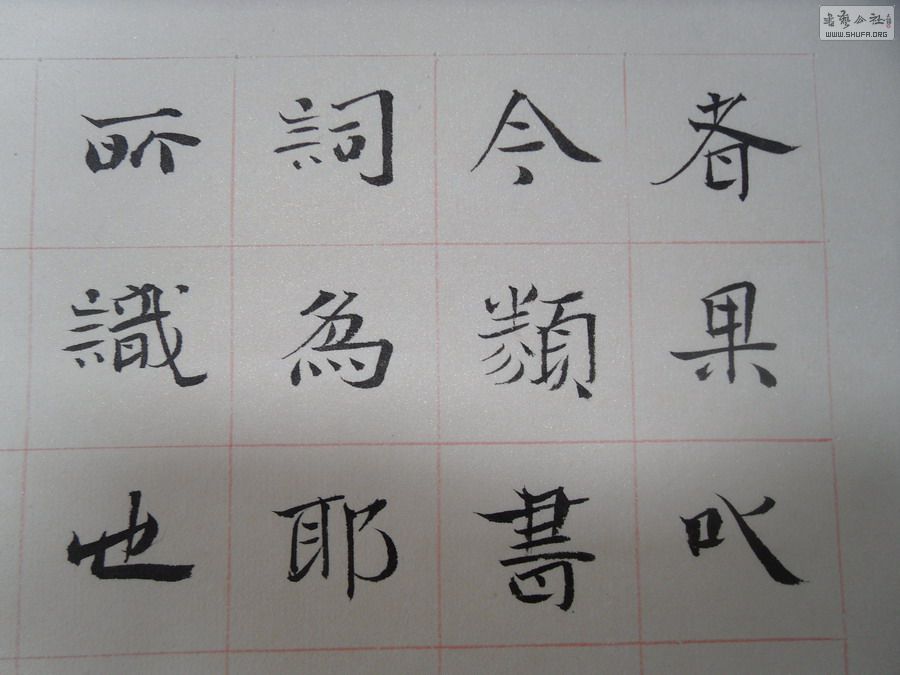 者果㕥
今類書
詞為耶
所識也
書藝公社
WWW.SHUFA.ORG